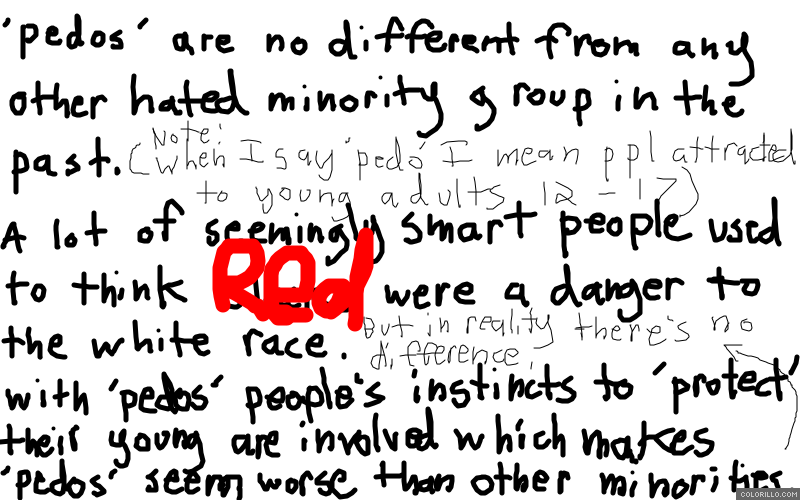 'pedos' are no different from any
other hated minority group in the
past. (Note:
when I say 'pedo' I mean ppl attracted
to young adults 12 - 17)
A lot of seemingly smart people used
to think Red were a danger to
the white race. But in reality there's no
difference,
with 'pedos' people's instincts to 'protect'
their young are involved which makes
'pedos' seem worse than other minorities
COLORILLO.COM